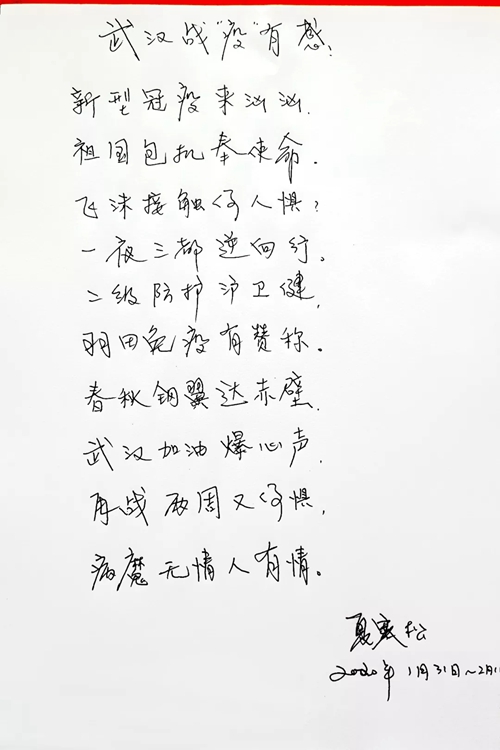 武汉战"疫"有感
新型冠疫来汹汹.
祖国包机奉使命.
飞沫接触何人惧?
一夜三都逆向行。
二级防护沪卫健,
羽田免疫有赞称。
春秋钢翼达赤壁.
武汉加油爆心声.
再战两周又何惧,
病魔无情人有情。
夏寒松
2020年1月31日~2月1